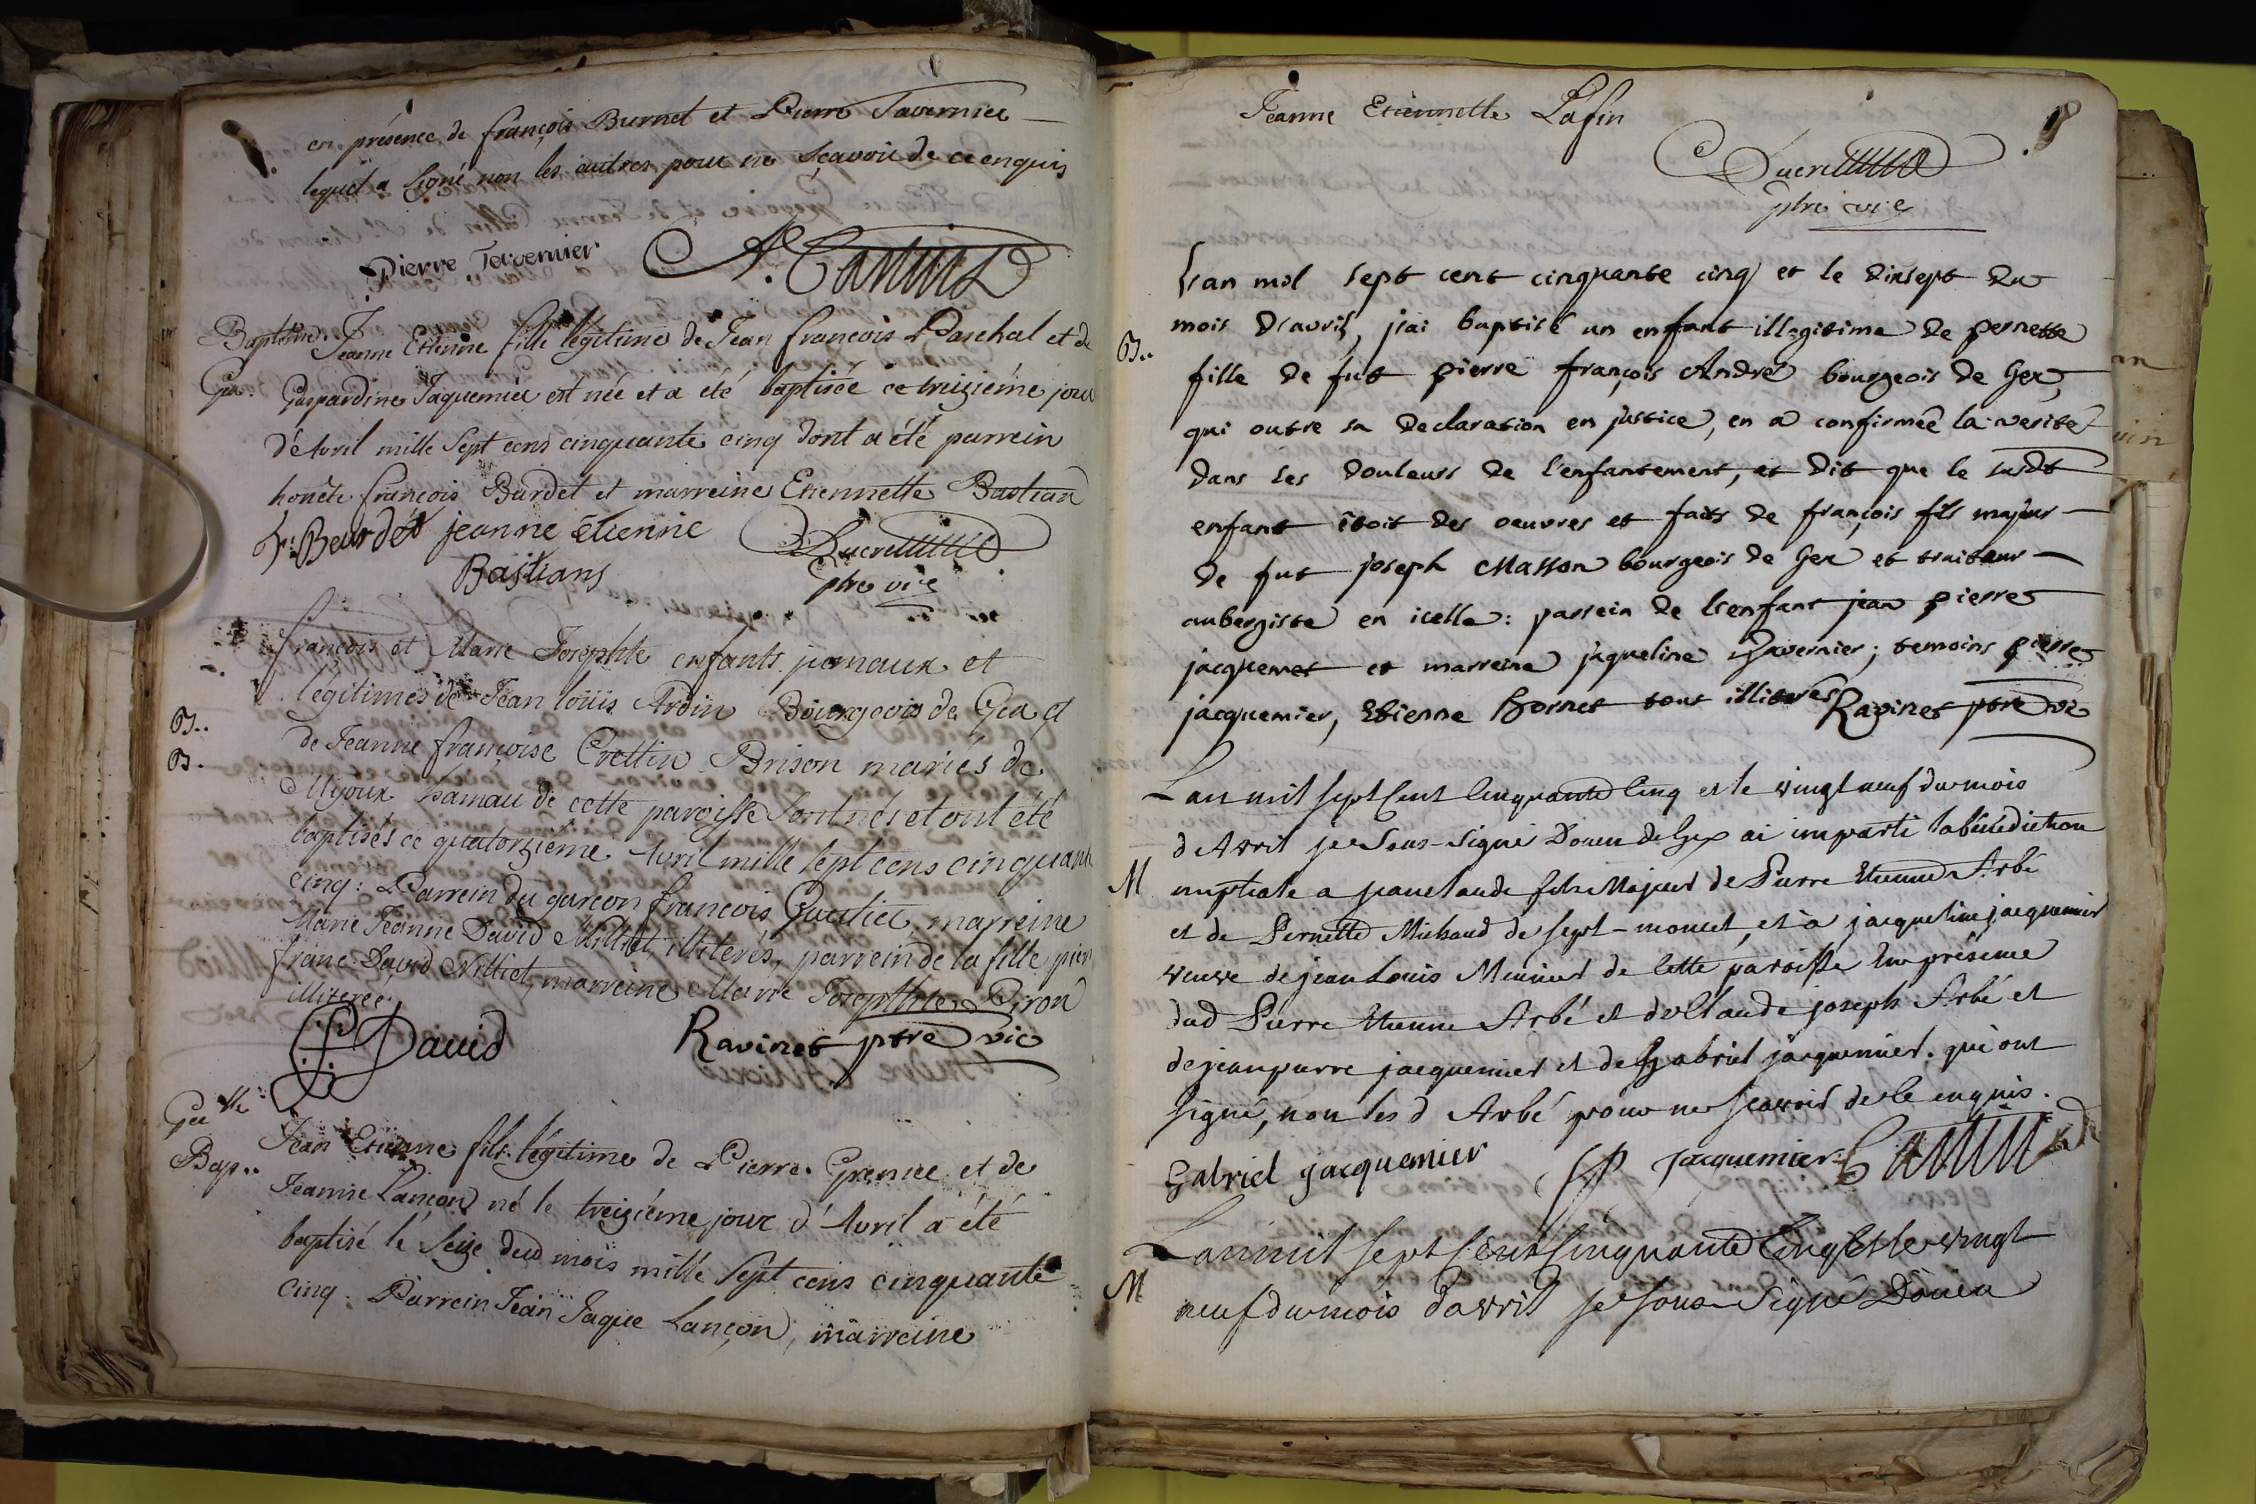 en présence de françois Burnet et Pierre Tavernier
lequel a signé non les autres pour ne sçavoir de ce enquis
Pierre Tavernier
Baptême
Gex.
Jeanne Etienne fille légitime de Jean françois Paschal et de
Gaspardine Jaquemier est née et a été baptisée ce treizième jour
d'Avril mille sept cens cinquante cinq dont a été parrein
honête françois Burdet et marreine Etiennette Bastian
fr: Beurdet jeanne etienne
Bastians
ptre vic
B..
B.
françois et Marie Josephte enfants jumaux et
légitimes de Jean loüis Ardin Bourgeois de Gex et
de Jeanne françoise Crettin Brison mariés de
Mijoux hamau de cette paroisse sont nés et ont été
baptisés ce quatorzième Avril mille sept cens cinquante
cinq: Parrein du garçon françois Gautier, marreine
Marie Jeanne David Milliet, illiterés, parrein de la fille pierre
franc. David Milliet, marreine Marie Josephte Piron
illiterée.
P David
Ravinet ptre vic
Gex
Bap..
Jean Etienne fils légitime de Pierre Grenier et de
Jeanne Lançon né le treizième jour d'Avril a été
baptisé le seize dud mois mille sept cens cinquante
cinq. Parrein Jean Jaque Lançon, marreine
Jeanne Etiennette Lafin
ptre vic
B..
L'an mil sept cent cinquante cinq et le dixsept du
mois d'avril, j'ai baptisé un enfant illegitime de pernette
fille de fut pierre françois André bourgeois de Gex,
qui outre sa declaration en justice, en a confirmée la verité
dans les douleurs de l'enfantement, et dit que le susdt
enfant étoit des oeuvres et faits de françois fils majeur
de fut joseph Masson bourgeois de Gex et traiteur
aubergiste en icelle: parrein de l'enfant jean pierre
jacquemet et marreine jaqueline Tavernier; temoins pierre
jacquemier, Etienne Bornet tous illiterés Ravinet ptre vic
M
L'an mil sept cent cinquante cinq et le vingt neuf du mois
d'Avril je sous-signé Doien de Gex ai imparti la bénédiction
nuptiale a jean claude fils Majeur de Pierre Etienne Arbé
et de Pernette Michaud de sept-moncel, et à jacqueline jacquemier
veuve de jean Louis Meunier de cette paroisse En présence
dud Pierre Etienne Arbé et de Claude joseph Arbé et
de jean pierre jacquemier et de Gabriel jacquemier. qui ont
signé, non les d Arbé pour ne scavoir de ce enquis.
Gabriel jacquemier JP Jacquemier
M
L'an mil sept cent cinquante cinq Et le vingt
neuf du mois d'avril je sous-signé Doien